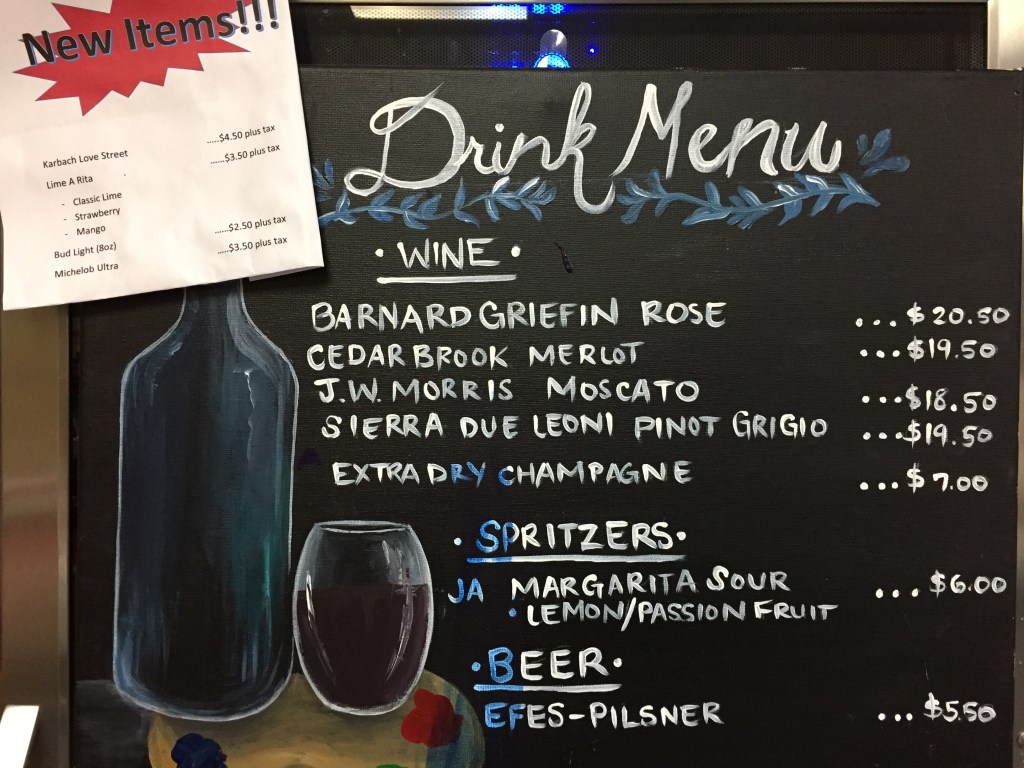 New Items!!!
Karbach Love Street .....$4.50 plus tax
Lime A Rita ......$3.50 plus tax
- Classic Lime
- Strawberry
- Mango
Bud Light (8oz) ......$2.50 plus tax
Michelob Ultra .....$3.50 plus tax
Drink Menu
· WINE ·
BARNARD GRIEFIN ROSE ...$20.50
CEDARBROOK MERLOT ...$19.50
J.W. MORRIS MOSCATO ...$18.50
SIERRA DUE LEONI PINOT GRIGIO ...$19.50
EXTRA DRY CHAMPAGNE ...$7.00
· SPRITZERS ·
JA MARGARITA SOUR ...$6.00
· LEMON/PASSION FRUIT
· BEER ·
EFES-PILSNER ...$5.50